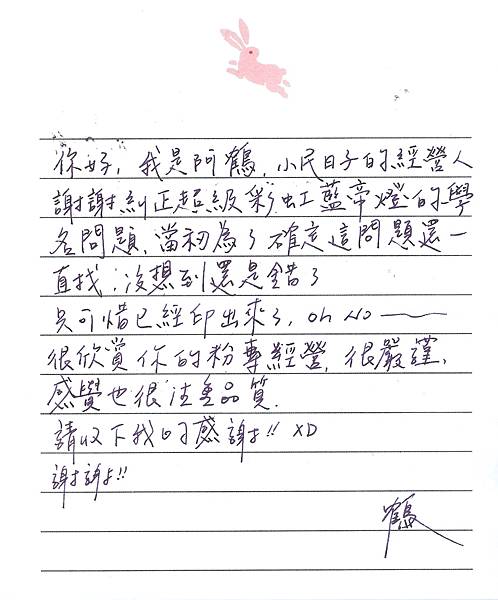 你好，我是阿鶴，小民日子的經營人
謝謝糾正超級彩虹藍帝燈的學
名問題，當初為了確定這問題還一
直找；沒想到還是錯了
只可惜已經印出來了，oh No——
很欣賞你的粉專經營，很嚴謹，
感覺也很注重品質.
請收下我的感謝!! XD
謝謝!!
鶴